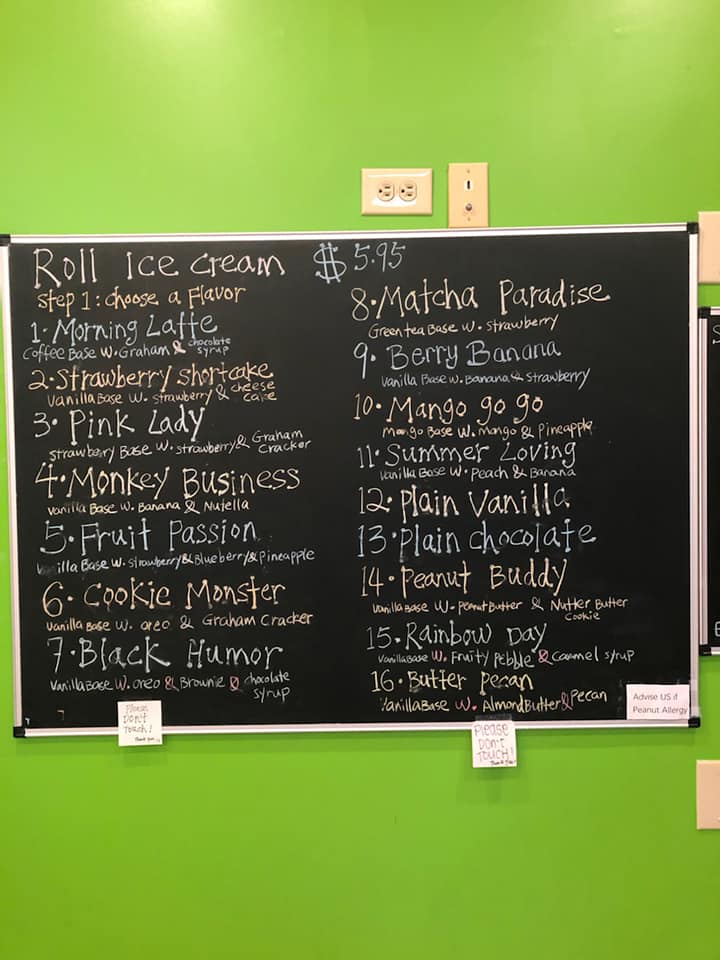 Roll Ice cream $5.95
Step 1: choose a Flavor
1. Morning Latte
Coffee Base W. Graham & chocolate syrup
2. Strawberry shortcake
Vanilla Base W. strawberry & cheese cake
3. Pink Lady
Strawberry Base W. strawberry & Graham Cracker
4. Monkey Business
Vanilla Base W. Banana & Nutella
5. Fruit Passion
Vanilla Base W. strawberry & Blueberry & pineapple
6. Cookie Monster
Vanilla Base W. oreo & Graham Cracker
7. Black Humor
Vanilla Base W. oreo & Brownie & chocolate syrup
8. Matcha Paradise
Green tea Base W. strawberry
9. Berry Banana
Vanilla Base W. Banana & strawberry
10. Mango go go
Mango Base W. mango & Pineapple
11. Summer Loving
Vanilla Base W. Peach & Banana
12. Plain Vanilla
13. Plain chocolate
14. Peanut Buddy
Vanilla Base W. Peanut Butter & Nutter Butter Cookie
15. Rainbow Day
Vanilla Base W. Fruity Pebble & Caramel syrup
16. Butter Pecan
Vanilla Base W. Almond Butter & Pecan
Advise US if
Peanut Allergy
Please
Don't
Touch!
Thank you
Please
Don't
Touch!
Thank you!